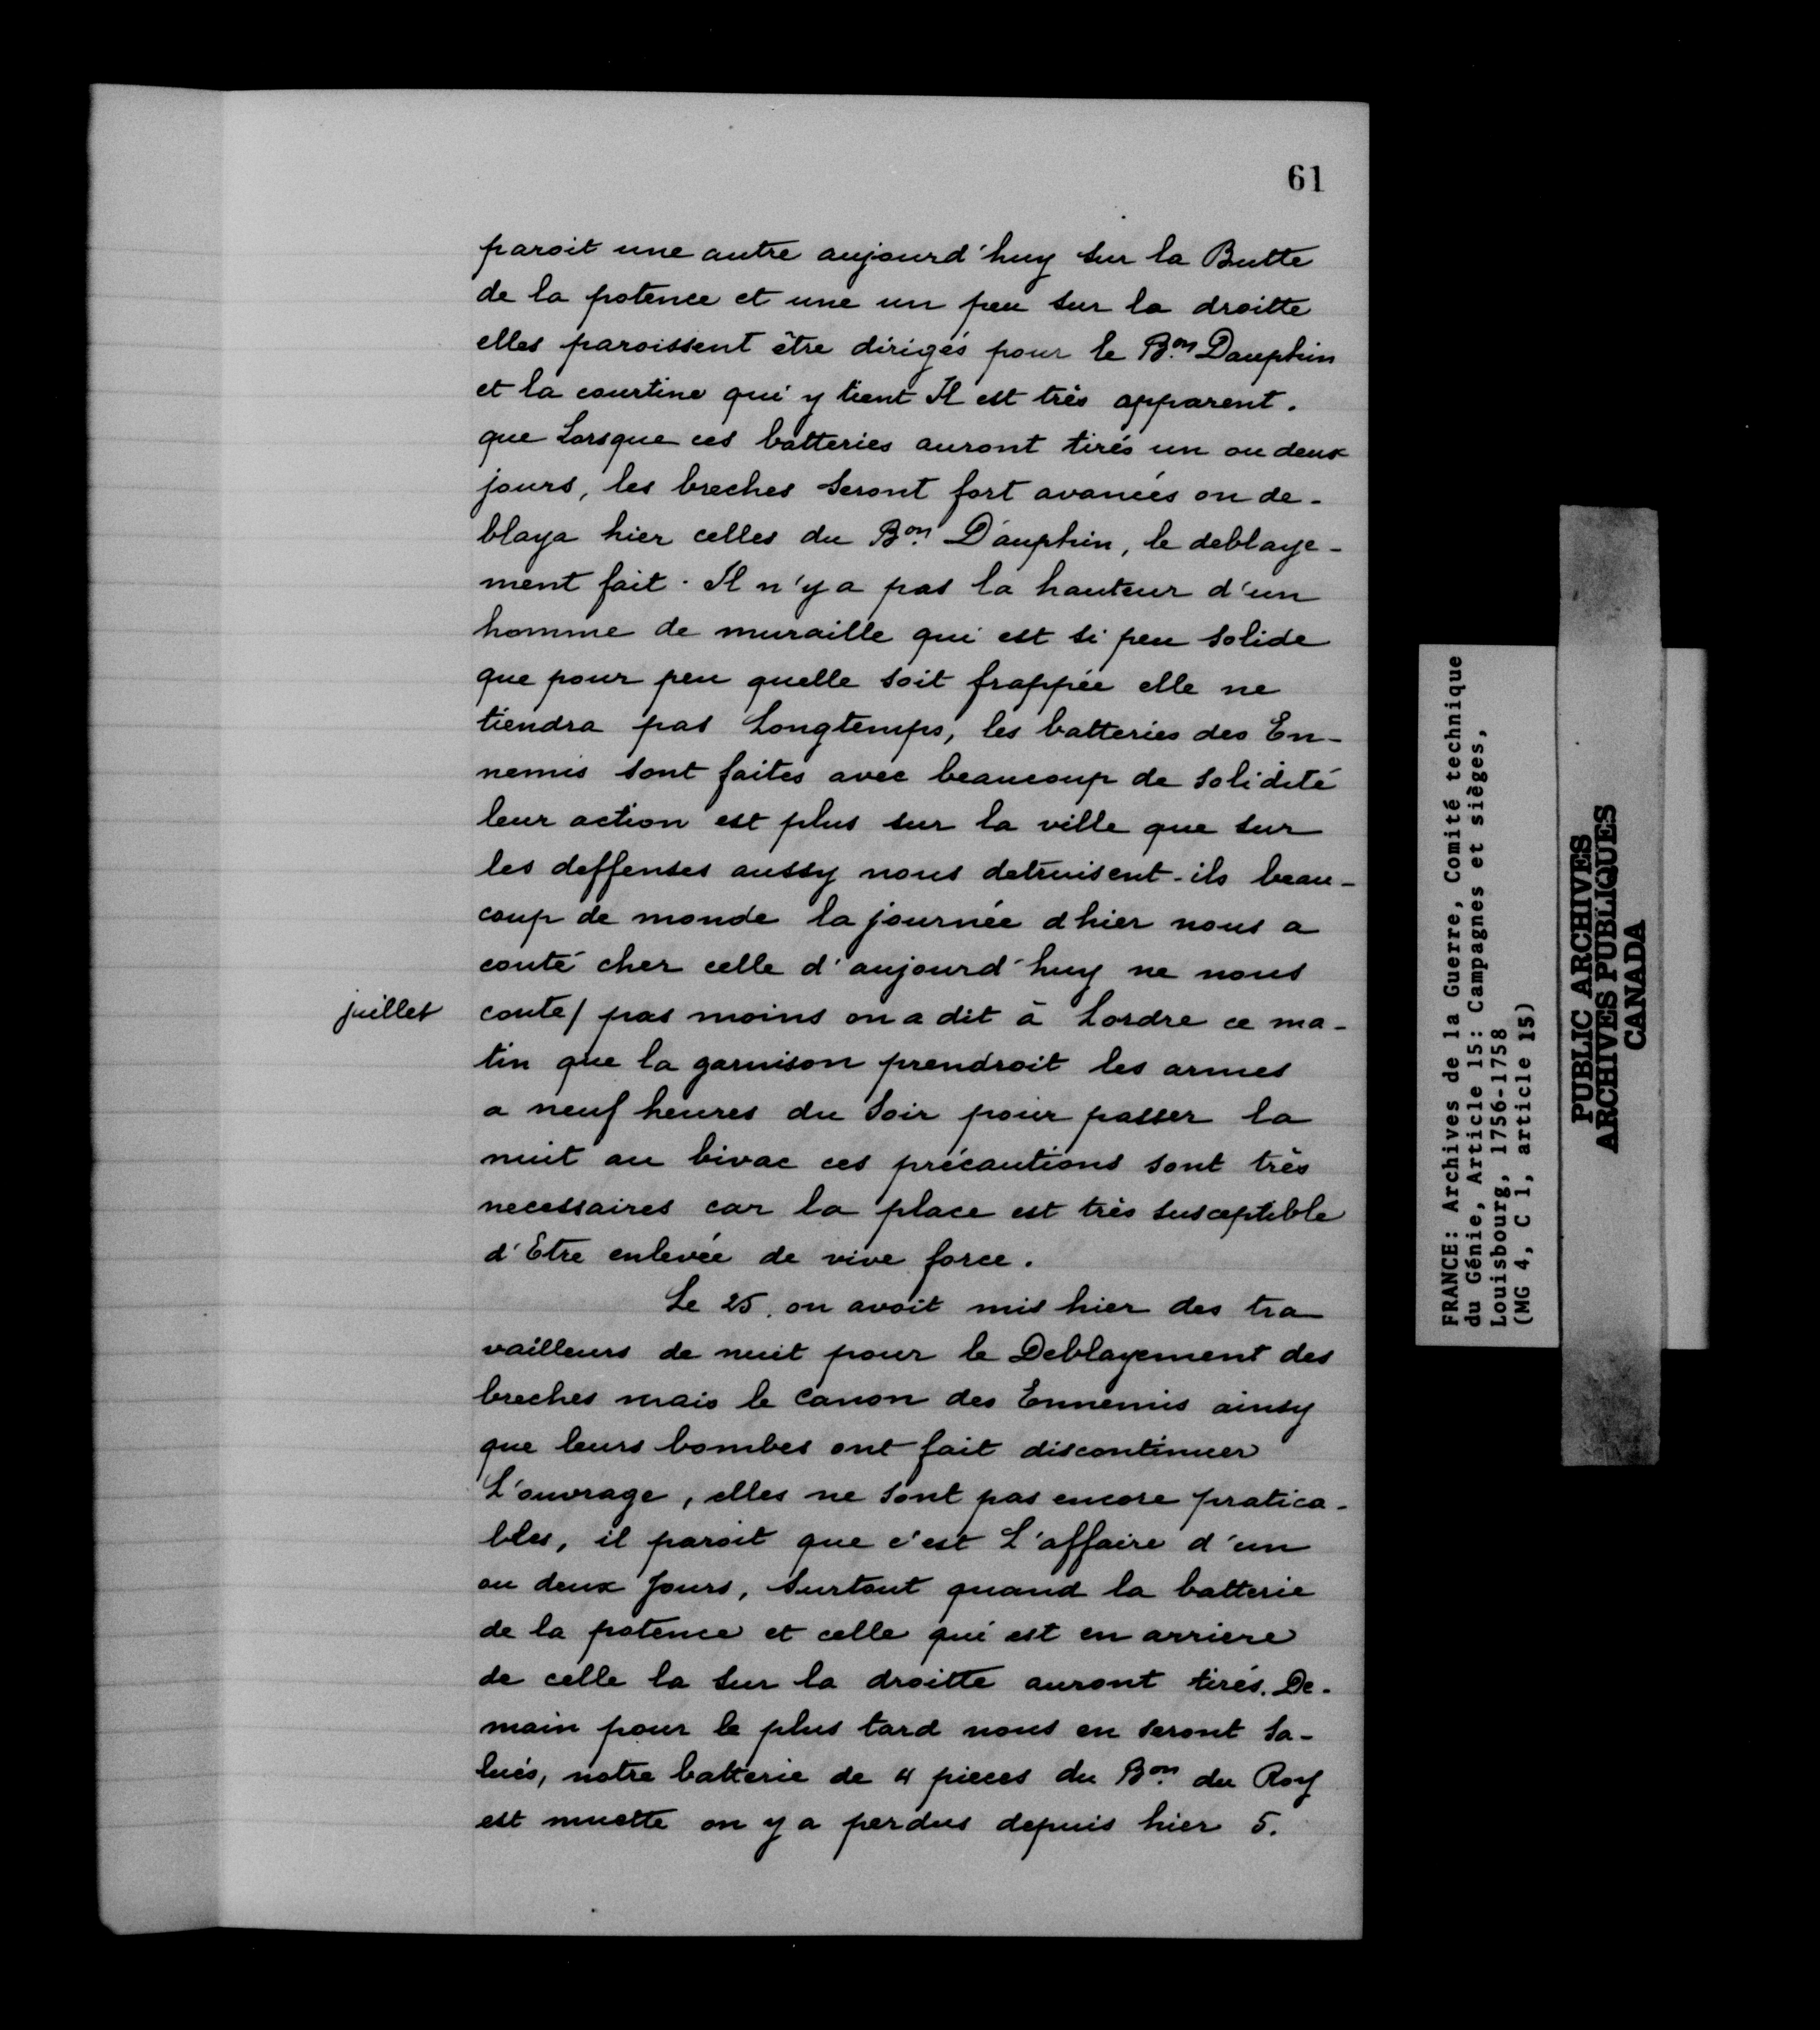 61
paroit une autre aujourd'huy sur la Butte
de la potence et une un peu sur la droitte
elles paroissent être dirigés pour le Bon. Dauphin
et la courtine qui y tient Il est très apparent.
que Lorsque ces batteries auront tirés un ou deux
jours, les breches seront fort avancées on de-
blaya hier celles du Bon. Dauphin, le deblaye-
ment fait. Il n'y a pas la hauteur d'un
homme de muraille qui est si peu solide
que pour peu quelle soit frappée elle ne
tiendra pas Longtemps, les batteries des En-
nemis sont faites avec beaucoup de solidité
leur action est plus sur la ville que sur
les deffenses aussy nous detruisent-ils beau-
coup de monde la journée d hier nous a
couté cher celle d'aujourd'huy ne nous
juillet coute/ pas moins on a dit à Lordre ce ma-
tin que la garnison prendroit les armes
a neuf heures du soir pour passer la
nuit au bivac ces précautions sont très
necessaires car la place est très susceptible
d'Etre enlevée de vive force.
Le 25. on avoit mis hier des tra
vailleurs de nuit pour le Deblayement des
breches mais le canon des Ennemis ainsy
que leurs bombes ont fait discontinuer
L'ouvrage, elles ne sont pas encore pratica-
bles, il paroit que c'est L'affaire d'un
ou deux Jours, surtout quand la batterie
de la potence et celle qui est en arriere
de celle la sur la droitte auront tirés. De-
main pour le plus tard nous en seront sa-
lués, notre batterie de 4 pieces du Bon. du Roy
est muette on y a perdus depuis hier 5.
FRANCE: Archives de la Guerre, Comité technique
du Génie, Article 15: Campagnes et sièges,
Louisbourg, 1756-1758
(MG 4, C 1, article 15)
PUBLIC ARCHIVES
ARCHIVES PUBLIQUES
CANADA